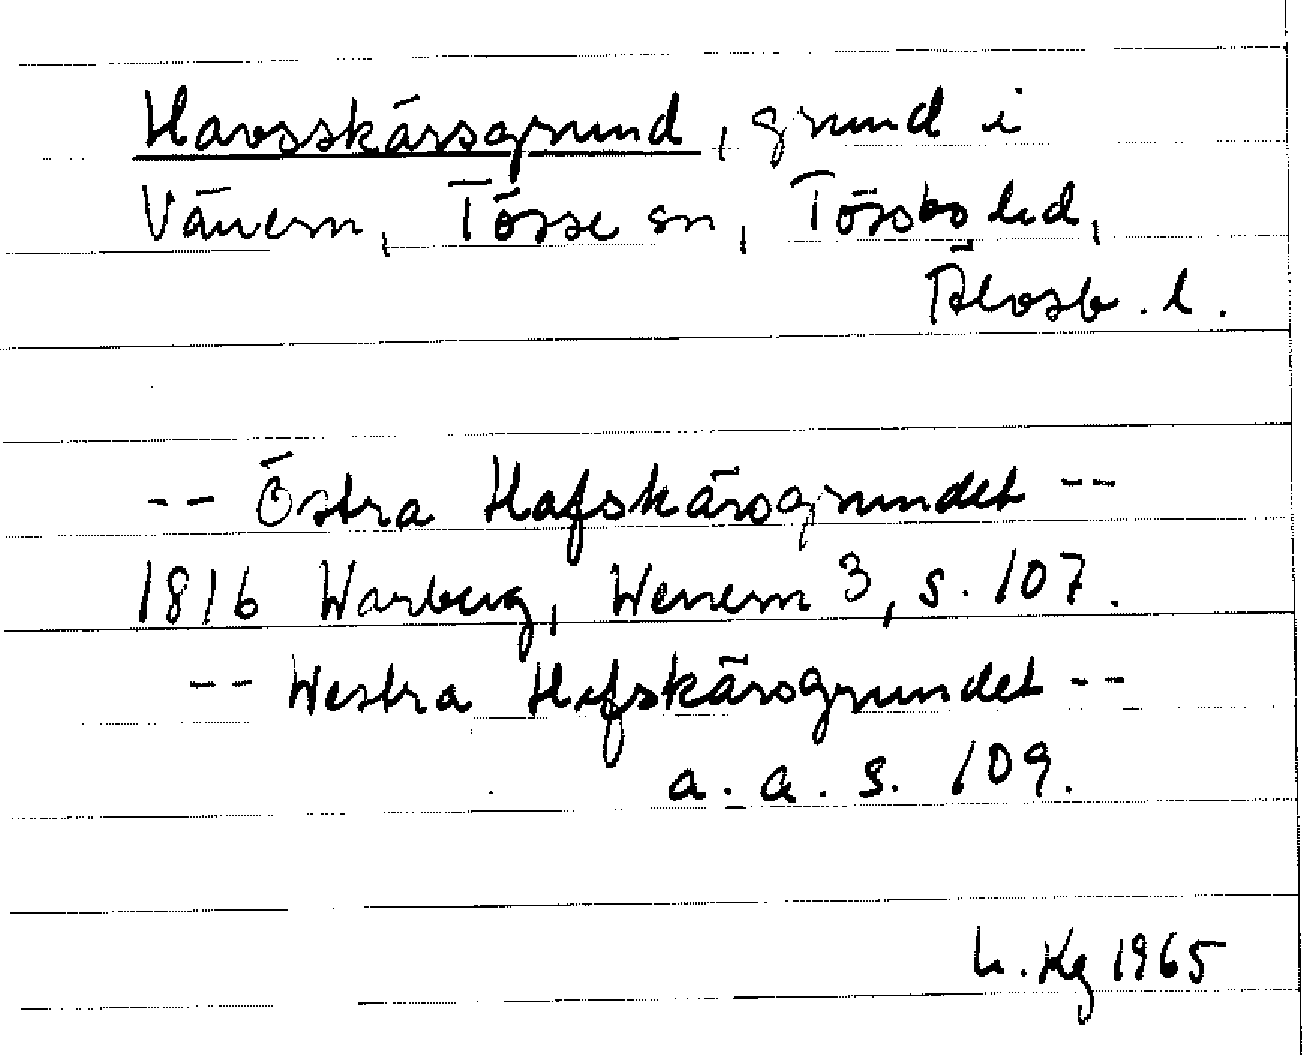 Havsskärsgrund, grund i
Vänern, Tösse sn, Tössbo hd,
Älvsb. l.
-- Östra Hafskärsgrundet --
1816 Warberg, Wenern 3, s. 107.
-- Westra Hafskärsgrundet --
a. a. s. 109.
L. Kg 1965